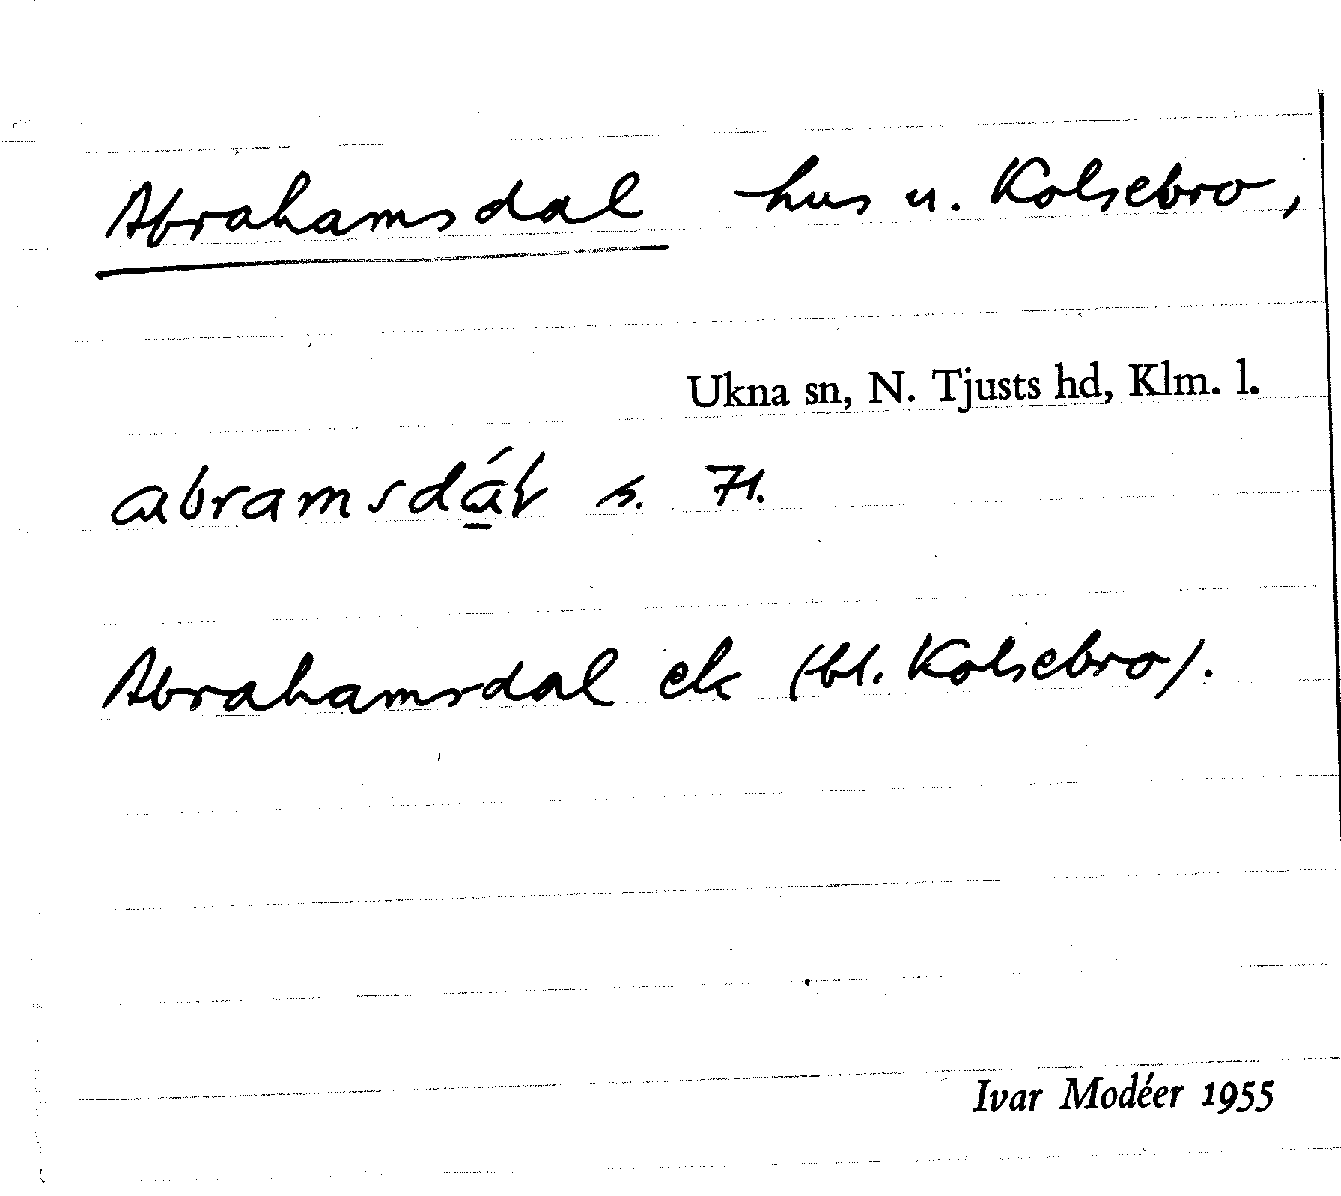 Abrahamsdal hus u. Kolsebro,
Ukna sn, N. Tjusts hd, Klm. l.
abramsdá̱ł s. 71.
Abrahamsdal ek (bl. Kolsebro).
Ivar Modéer 1955